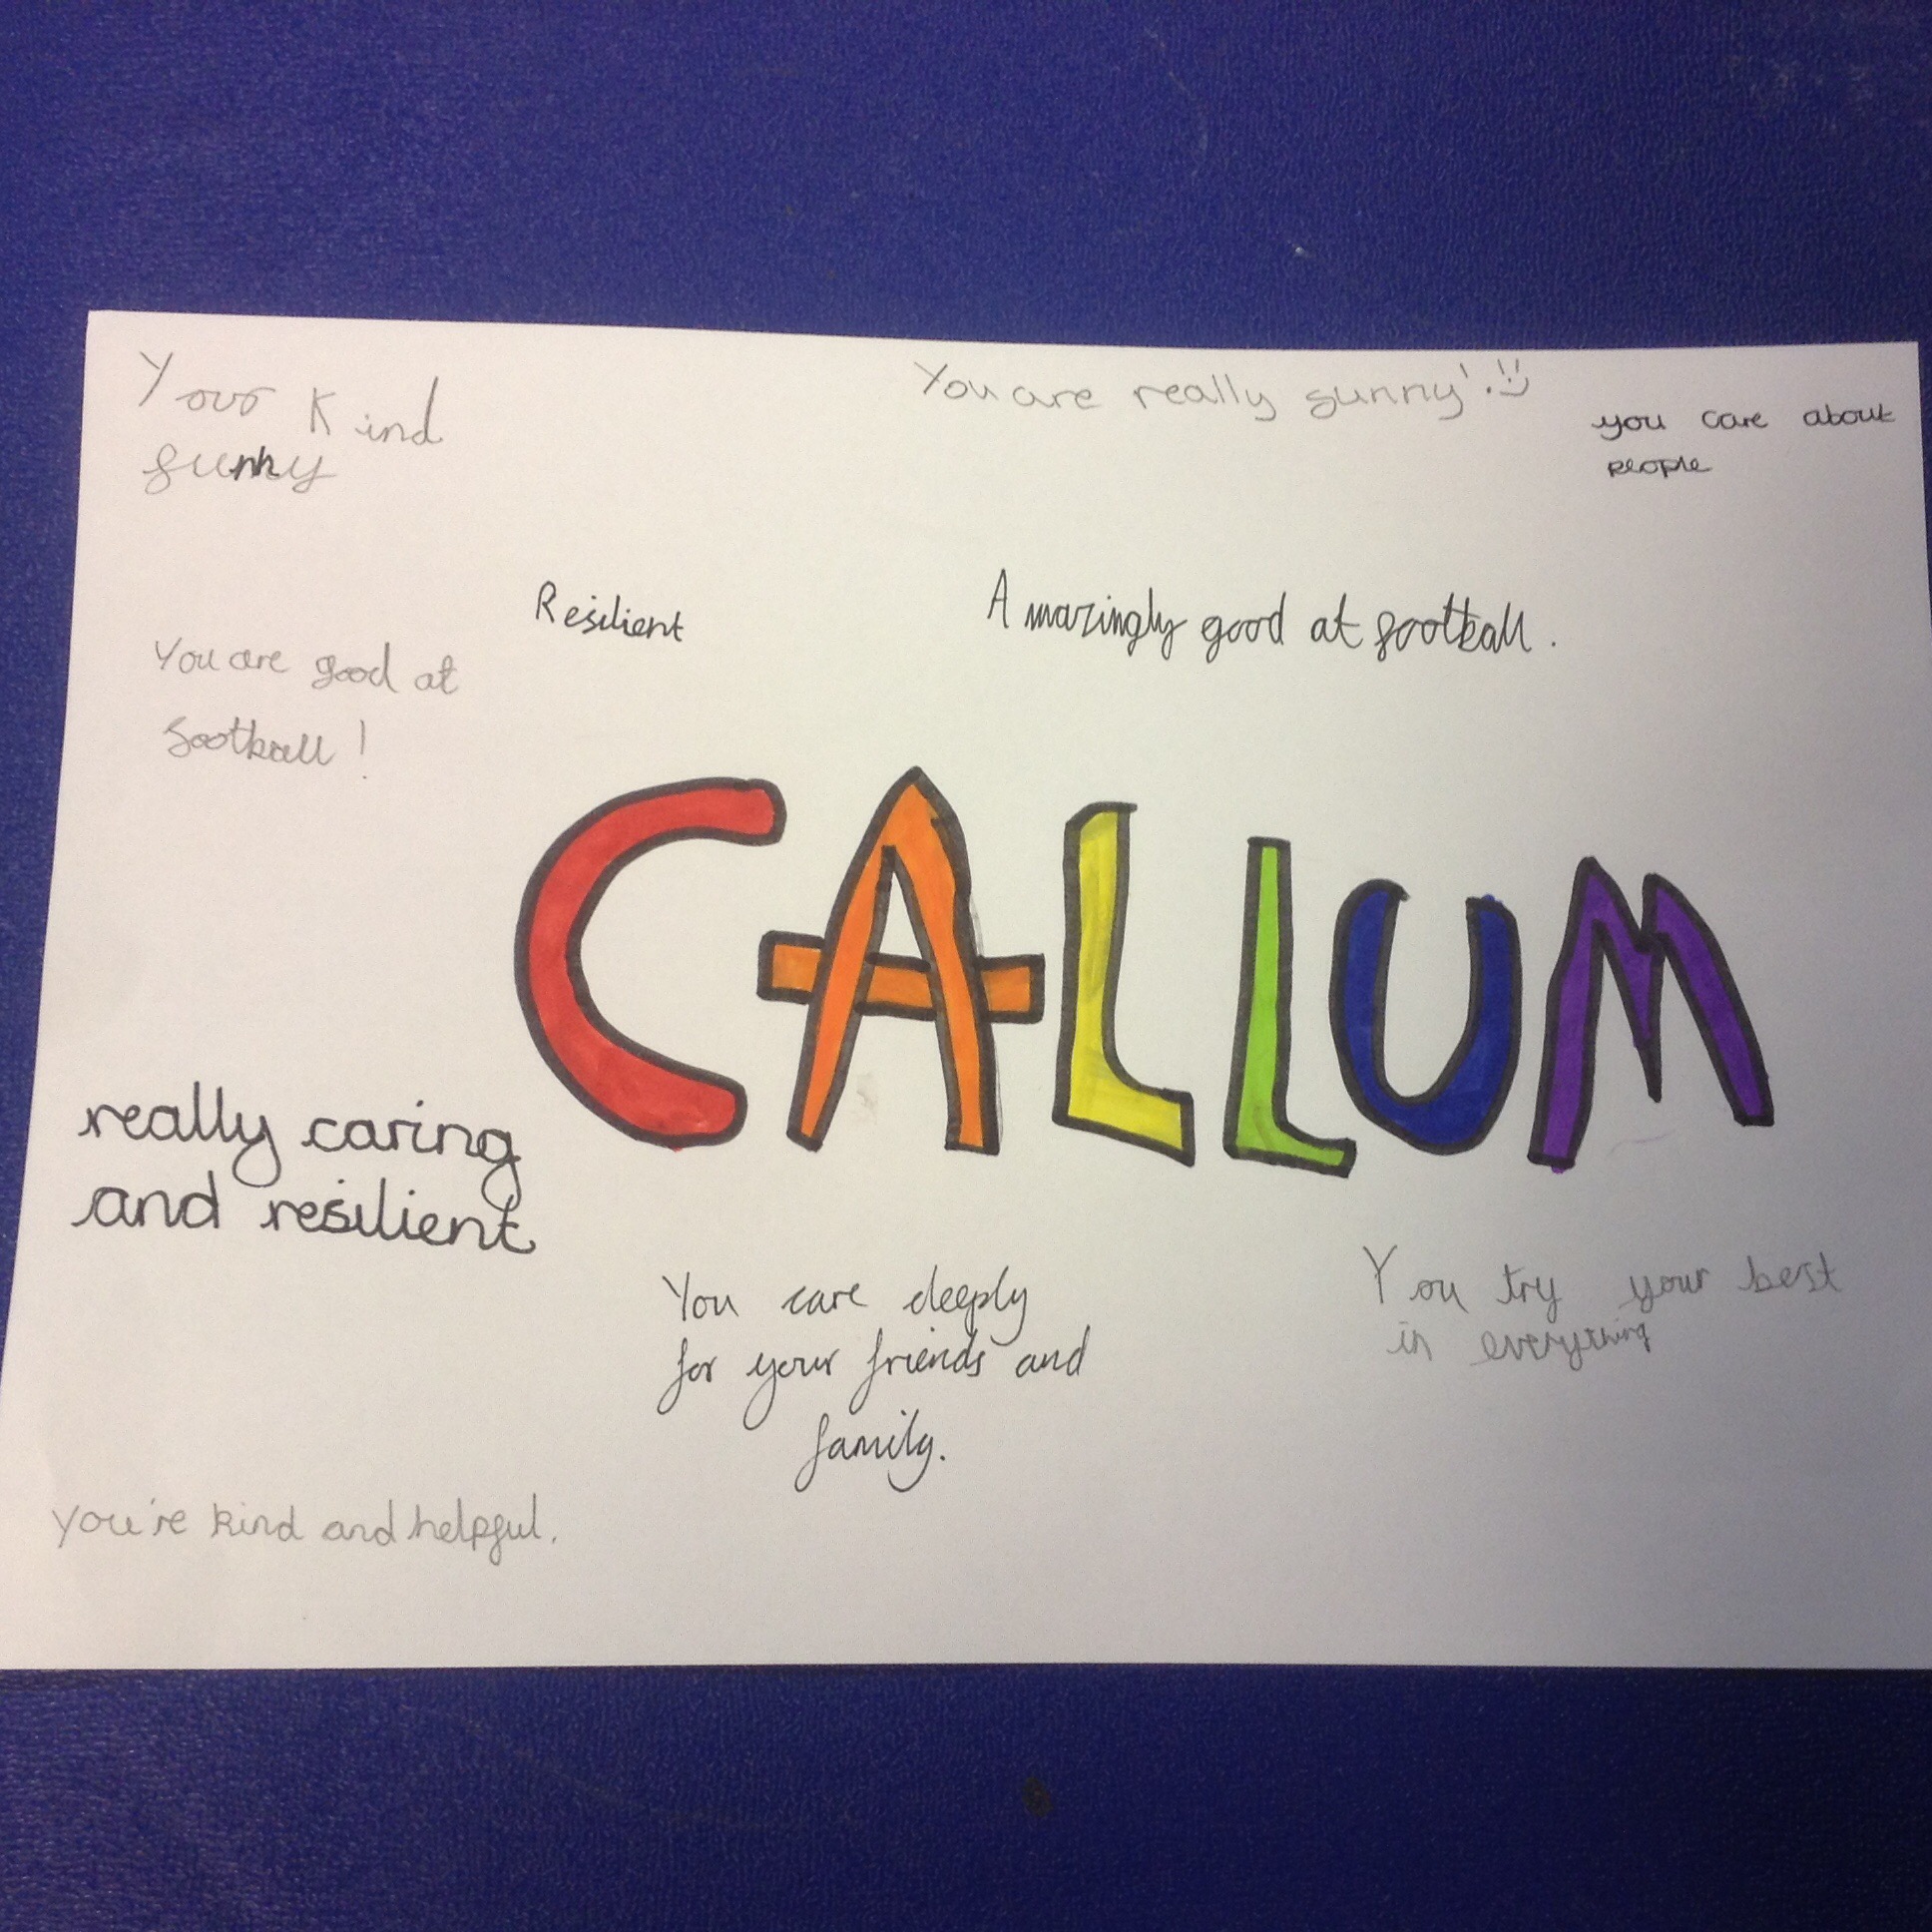 Your Kind
funny
You are really funny! :)
you care about
people
Resilient
Amazingly good at football.
You are good at
football!
CALLUM
really caring
and resilient
You care deeply
for your friends and
family.
You try your best
in everything
you're kind and helpful.